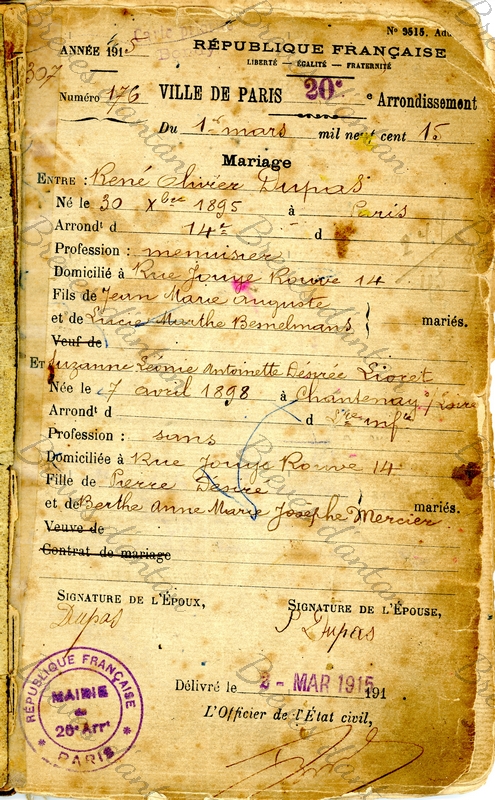 Nº 9515. Ad
ANNÉE 1915
307
RÉPUBLIQUE FRANÇAISE
LIBERTÉ — ÉGALITÉ — FRATERNITÉ
Numéro 176
VILLE DE PARIS 20e e Arrondissement
Du 1er mars mil neuf cent 15
Mariage
ENTRE : René Olivier Dupas
Né le 30 Xbre 1895 à Paris
Arrondt d 14e d
Profession : menuisier
Domicilié à Rue Jouye Rouve 14
Fils de Jean Marie Auguste
et de Lucie Marthe Bemelmans } mariés.
Veuf de
ET Suzanne Léonie Antoinette Désirée Lioret
Née le 7 avril 1898 à Chantenay s/ Loire
Arrondt d d Lre Infre
Profession : sans
Domiciliée à Rue Jouye Rouve 14
Fille de Pierre Désiré
et de Berthe Anne Marie Josephe Mercier } mariés.
Veuve de
Contrat de mariage
SIGNATURE DE L'ÉPOUX, SIGNATURE DE L'ÉPOUSE,
Dupas S Dupas
RÉPUBLIQUE FRANÇAISE
MAIRIE
du
20e Arrt
* PARIS *
Délivré le 2 - MAR 1915 191
L'Officier de l'État civil,
Brèves d'antan